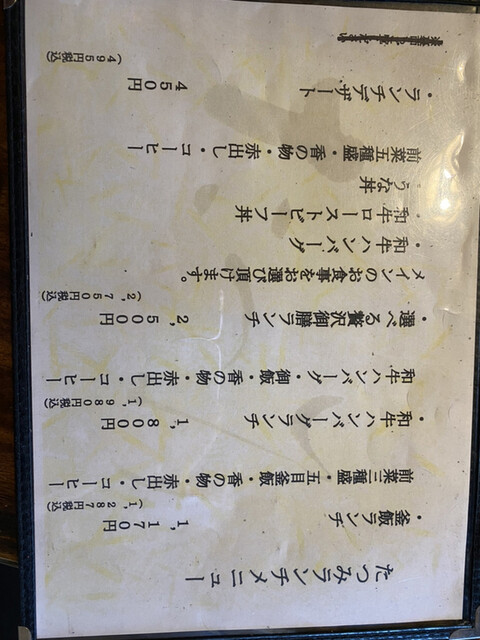 たつみランチメニュー
・釜飯ランチ 1,170円
(1,287円税込)
前菜三種盛・五目釜飯・香の物・赤出し・コーヒー
・和牛ハンバーグランチ 1,800円
(1,980円税込)
和牛ハンバーグ・御飯・香の物・赤出し・コーヒー
・選べる贅沢御膳ランチ 2,500円
(2,750円税込)
メインのお食事をお選び頂けます。
・和牛ハンバーグ
・和牛ローストビーフ丼
・うな丼
前菜五種盛・香の物・赤出し・コーヒー
・ランチデザート 450円
(495円税込)